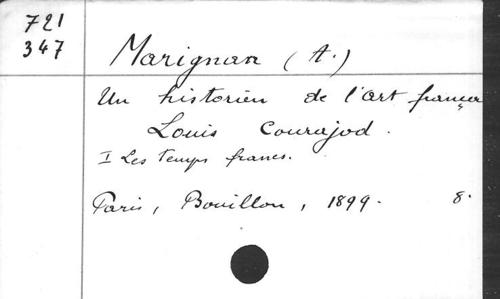 721
347
Marignan (A.)
Un historien de l'art français
Louis Courajod.
I Les Temps francs.
Paris, Bouillon, 1899. 8.